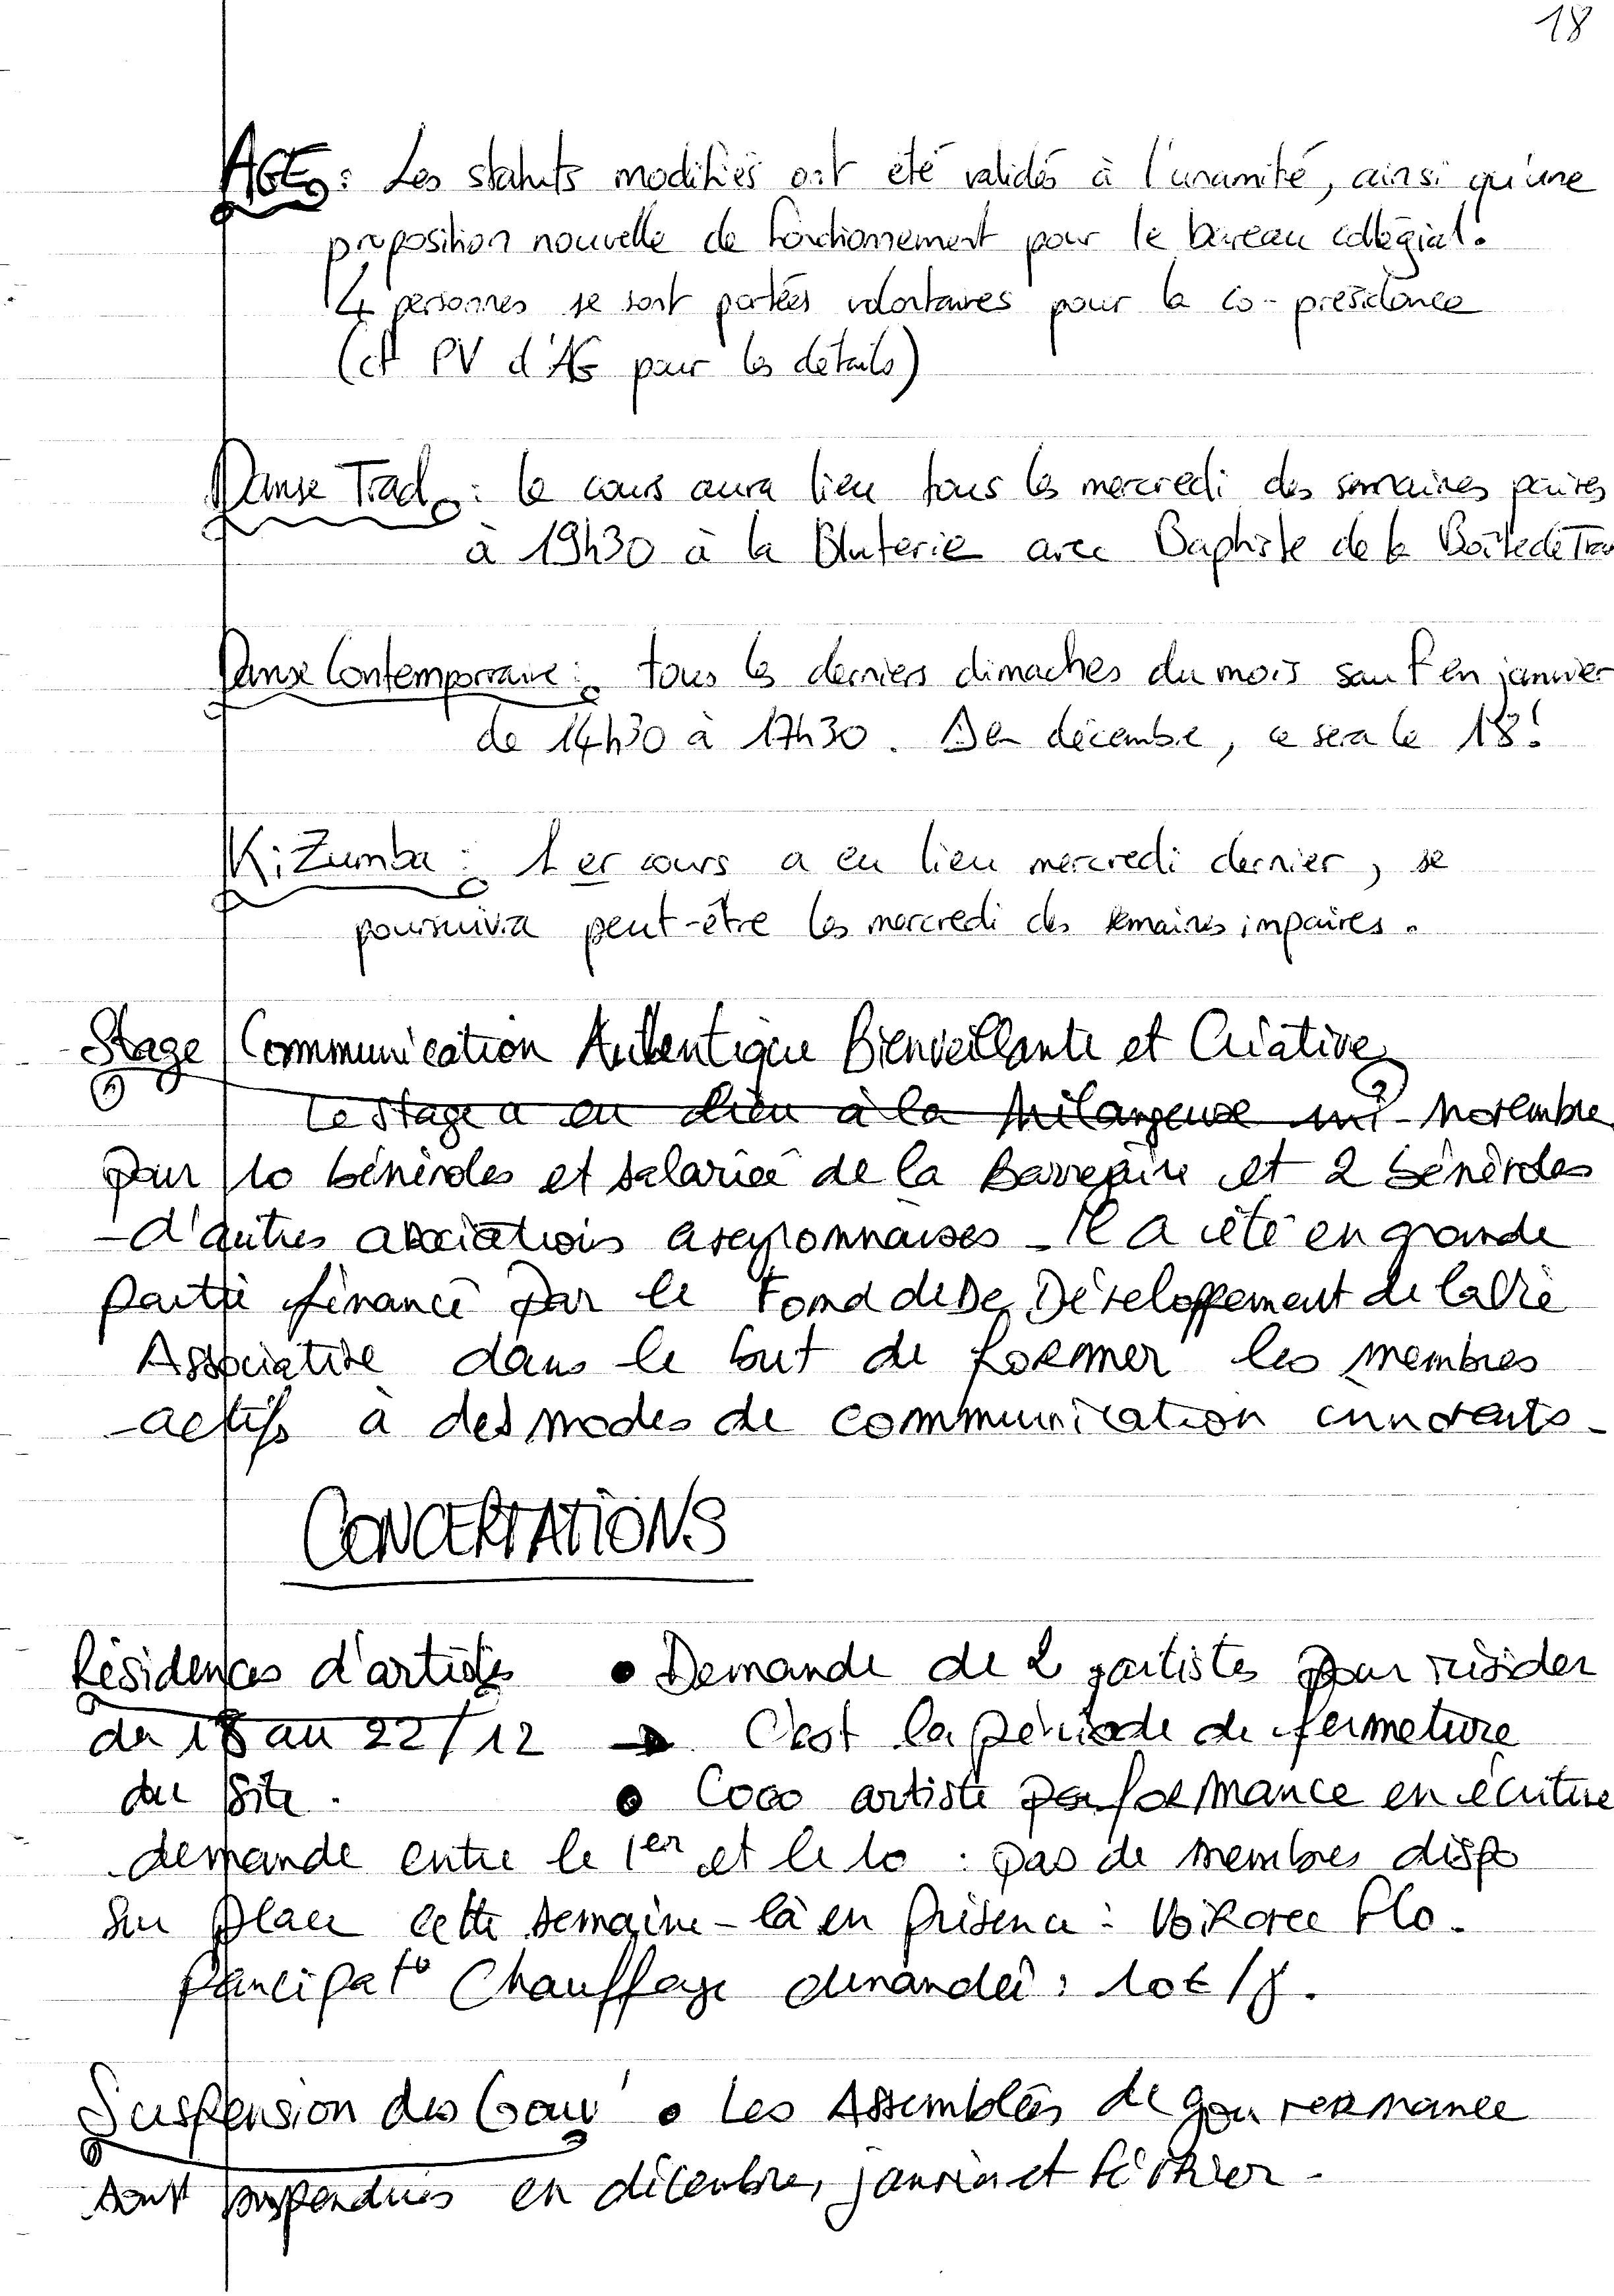 18
AGE : Les statuts modifiés ont été validés à l'unamité, ainsi qu'une
proposition nouvelle de fonctionnement pour le bureau collégial.
4 personnes se sont portées volontaires pour la co-présidence
(cf PV d'AG pour les détails)
Danse Trad : le cours aura lieu tous les mercredi des semaines paires
à 19h30 à la Bluterie avec Baptiste de la Boîte de Trad
Danse Contemporaine : tous les derniers dimaches du mois sauf en janvier
de 14h30 à 17h30. En décembre, ce sera le 18!
KiZumba : 1er cours a eu lieu mercredi dernier, se
poursuivra peut-être les mercredi des semaines impaires.
Stage Communication Authentique Bienveillante et Créative
Le stage a eu lieu à la Mélangeuse mi-novembre
pour 10 bénévoles et salariée de la et 2 bénévoles
d'autres associations aveyronnaises. Il a été en grande
partie financé par le Fond de De Développement de la Vie
Associative dans le but de former les membres
actifs à des modes de communication innovants.
CONCERTATIONS
Résidences d'artistes • Demande de 2 artistes pour résider
du 18 au 22/12 → C'est la période de fermeture
du site. • Coco artiste performance en écriture
demande entre le 1er et le 10 : pas de membres dispo
sur place cette semaine-là en présence : Flo.
Participat° Chauffage demandée : 10€/j.
Suspension des Gouv' • Les Assemblées de gouvernance
sont suspendues en décembre, janvier et février.